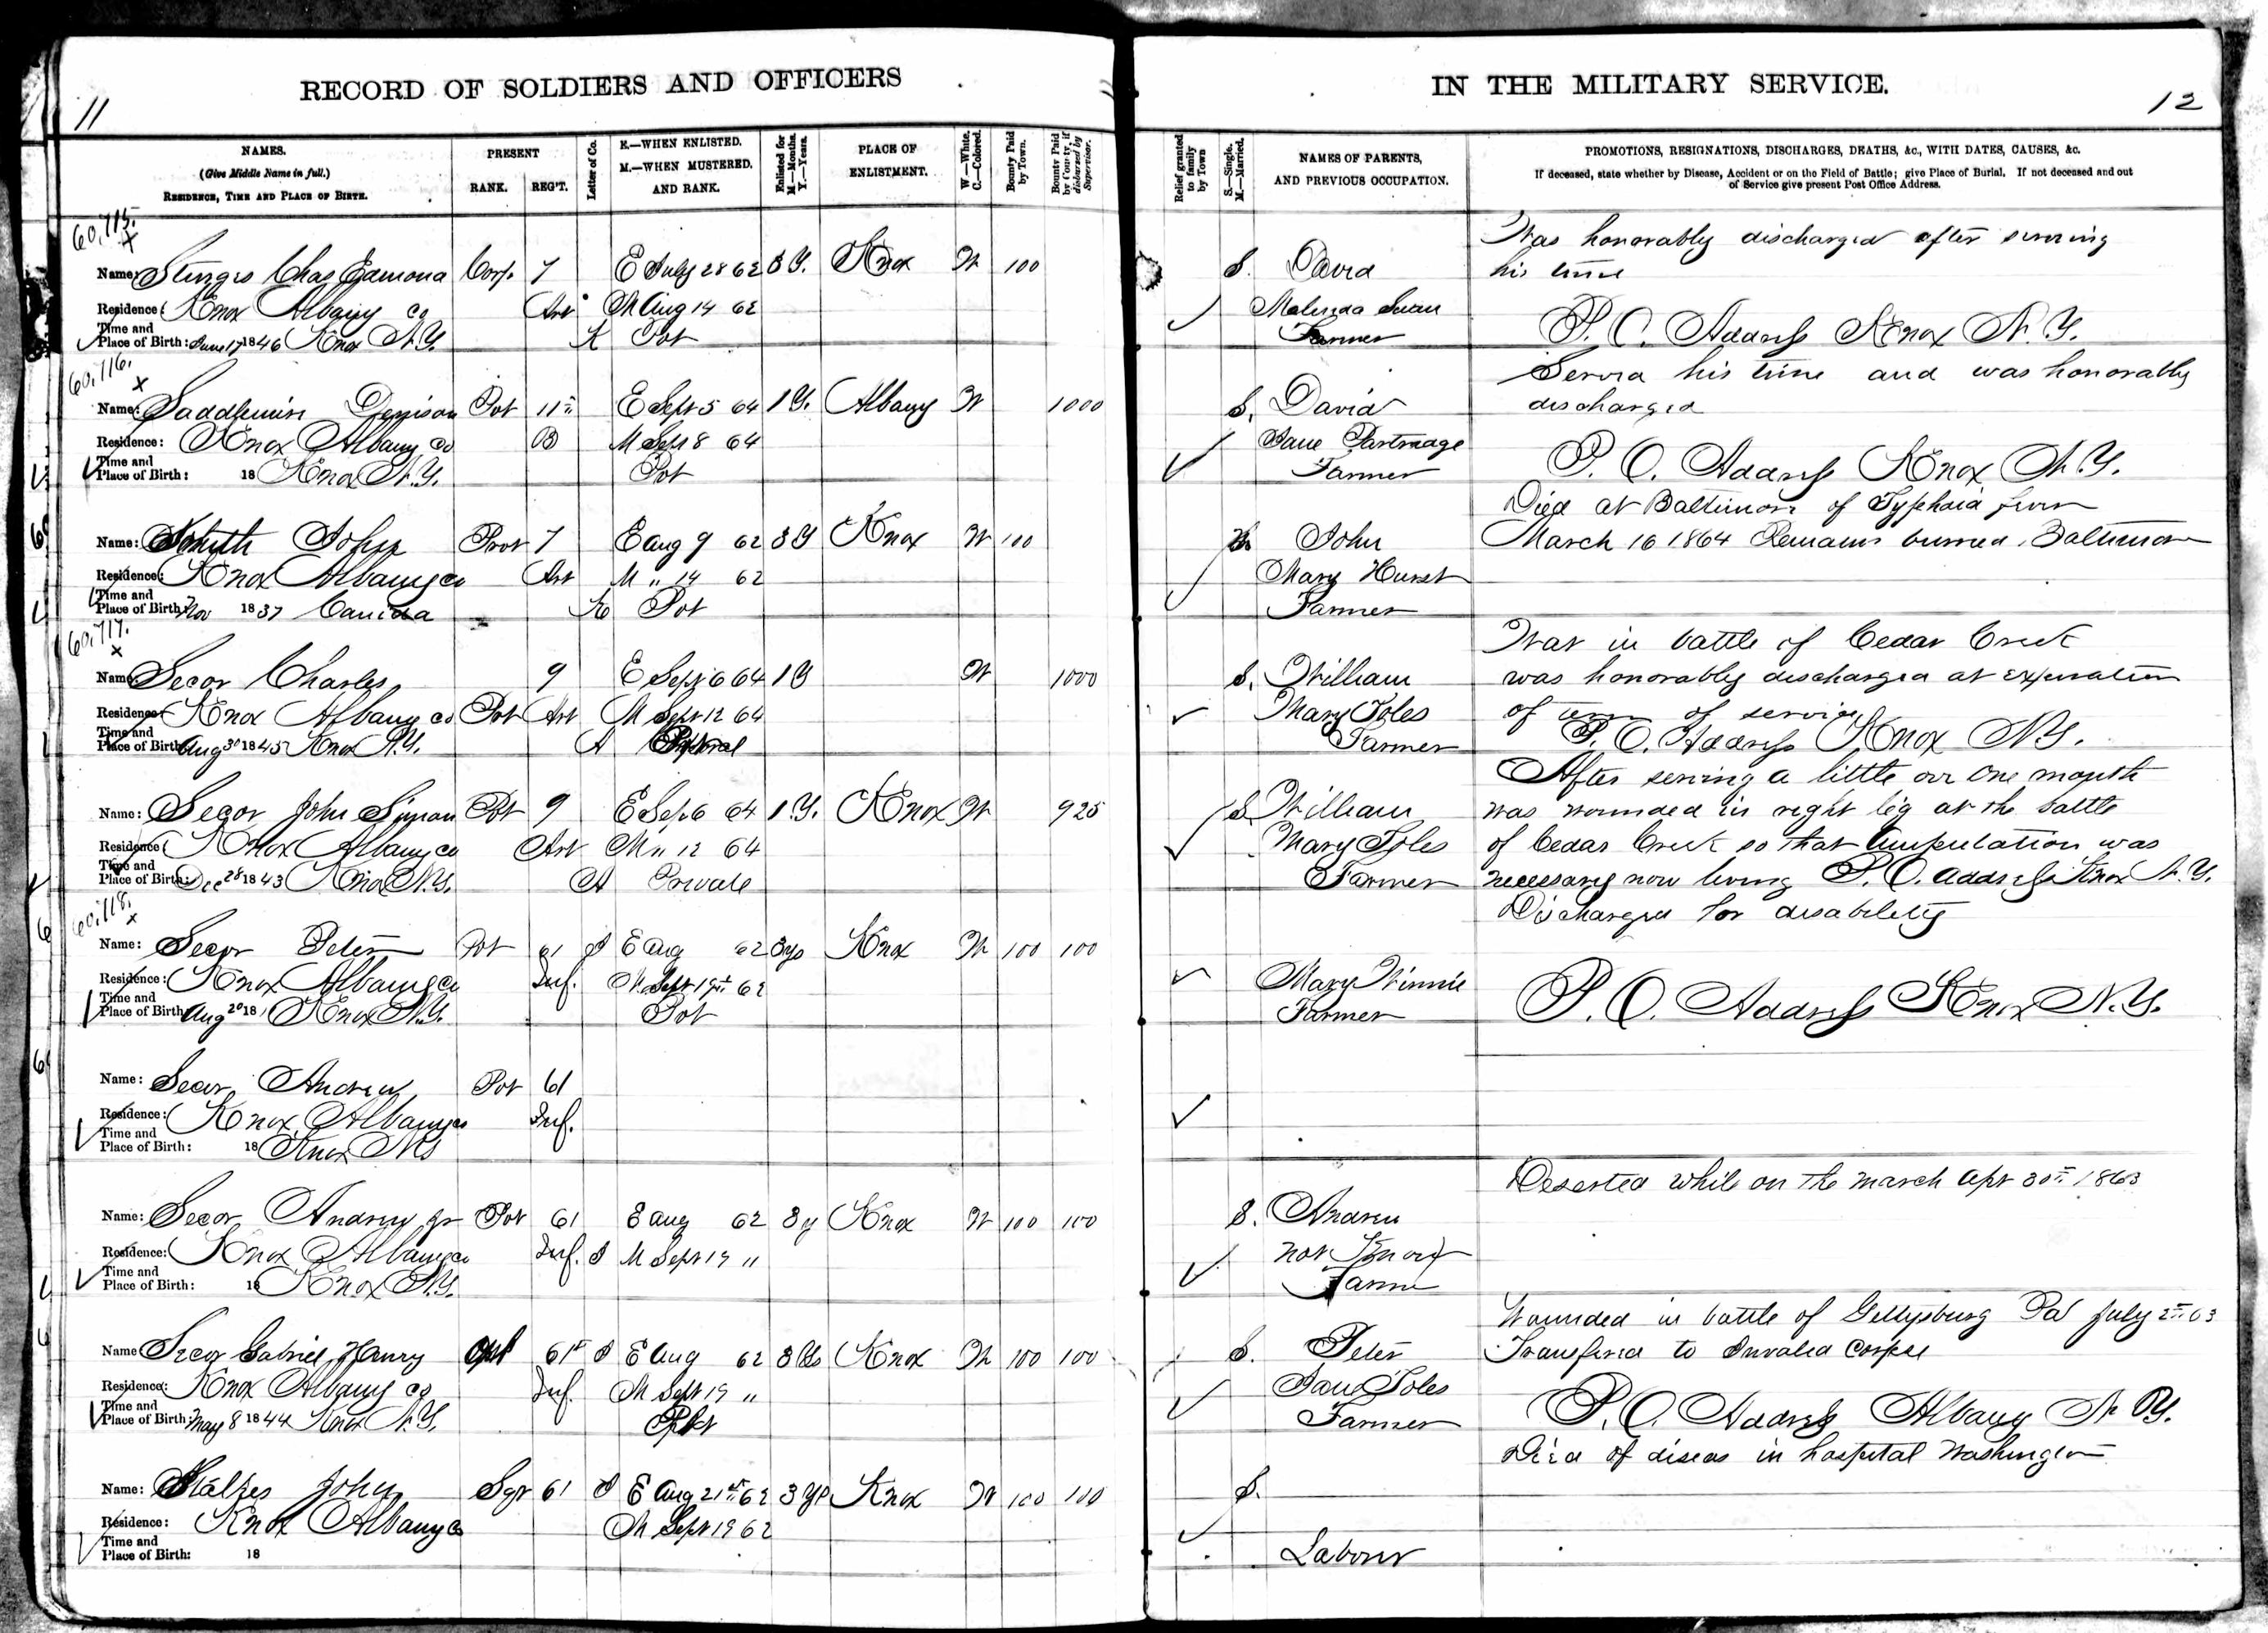 11
RECORD OF SOLDIERS AND OFFICERS
NAMES.
(Give Middle Name in full.)
RESIDENCE, TIME AND PLACE OF BIRTH.
PRESENT
RANK. REG'T.
Letter of Co.
E.—WHEN ENLISTED.
M.—WHEN MUSTERED.
AND RANK.
Enlisted for
M.—Months.
Y.—Years.
PLACE OF
ENLISTMENT.
W.—White.
C.—Colored.
Bounty Paid
by Town.
Bounty Paid
by County, if
disbursed by
Supervisor.
60,715.
x
Name: Sturgis Chas Edmond Corp. 7 E July 28 62 3 Y. Knox W 100
Residence: Knox Albany Co Art M Aug 14 62
Time and
Place of Birth: June 17 1846 Knox N.Y. K Pvt
60,716.
x
Name: Saddlemire Denison Pvt 11th E Sept 5 64 1 Y. Albany W 1000
Residence: Knox Albany Co B M Sept 8 64
Time and
Place of Birth: 18 Knox N.Y. Pvt
Name: John Prvt 7 E Aug 9 62 3 Y Knox W 100
Residence: Knox Albany Co Art M " 14 62
Time and
Place of Birth: Nov 1837 Canida K Pvt
60,717.
x
Name: Secor Charles 9 E Sept 6 64 1 Y W 1000
Residence: Knox Albany Co Pvt Art M Sept 12 64
Time and
Place of Birth: Aug 30 1845 Knox N.Y. A
Name: Secor John Simon Pvt 9 E Sep 6 64 1 Y. Knox W 925
Residence: Knox Albany Co Art M " 12 64
Time and
Place of Birth: Dec 28 1843 Knox N.Y. A Private
60,718.
x
Name: Secor Peter Pvt 61 I E Aug 62 3 ys Knox W 100 100
Residence: Knox Albany Co Inf. M Sept 19th 62
Time and
Place of Birth: Aug 20 18 Knox N.Y. Pvt
Name: Secor Andrew Pvt 61
Residence: Knox Albany Co Inf.
Time and
Place of Birth: 18 Knox N.Y
Name: Secor Andrew Jr Pvt 61 E Aug 62 3 y Knox W 100 100
Residence: Knox Albany Co Inf. I M Sept 19 "
Time and
Place of Birth: 18 Knox N.Y.
Name: Secor Gabriel Henry 61st I E Aug 62 3 Knox W 100 100
Residence: Knox Albany Co Inf. M Sept 19 "
Time and
Place of Birth: May 8 1844 Knox N.Y. Pvt
Name: John Sgt 61 I E Aug 21st 62 3 Yr Knox W 100 100
Residence: Knox Albany Co M Sept 19 62
Time and
Place of Birth: 18
IN THE MILITARY SERVICE.
12
Relief granted
to family
by Town
S.—Single.
M.—Married.
NAMES OF PARENTS,
AND PREVIOUS OCCUPATION.
PROMOTIONS, RESIGNATIONS, DISCHARGES, DEATHS, &c., WITH DATES, CAUSES, &c.
If deceased, state whether by Disease, Accident or on the Field of Battle; give Place of Burial. If not deceased and out
of Service give present Post Office Address.
Was honorably discharged after serving
S. David his time
Malinda Swan
Farmer P. O. Address Knox N. Y.
Served his time and was honorably
S. David discharged
Jane Partridge
Farmer P. O. Address Knox N. Y.
Died at Baltimore of Typhoid fever
John March 16 1864 Remains burried Baltimore
Mary Hurst
Farmer
Was in battle of Cedar Creek
S. William was honorably discharged at expiration
Mary Soles of term of service
Farmer P. O. Address Knox N Y.
After serving a little over one month
S William was wounded in right leg at the battle
Mary Soles of Cedar Creek so that amputation was
Farmer necessary now living P. O. address Knox N. Y.
Discharged for disability
Mary Winnie
Farmer P. O. Address Knox N. Y.
Deserted while on the march Apr 30th 1863
S. Andrew
not Known
Farmer
Wounded in battle of Gettysburg Pa July 2nd 63
S. Peter Transfired to Invalid Corpse
Jane Soles
Farmer P. O. Address Albany N. Y.
Died of diseas in hospital Washington
S.
Laborer